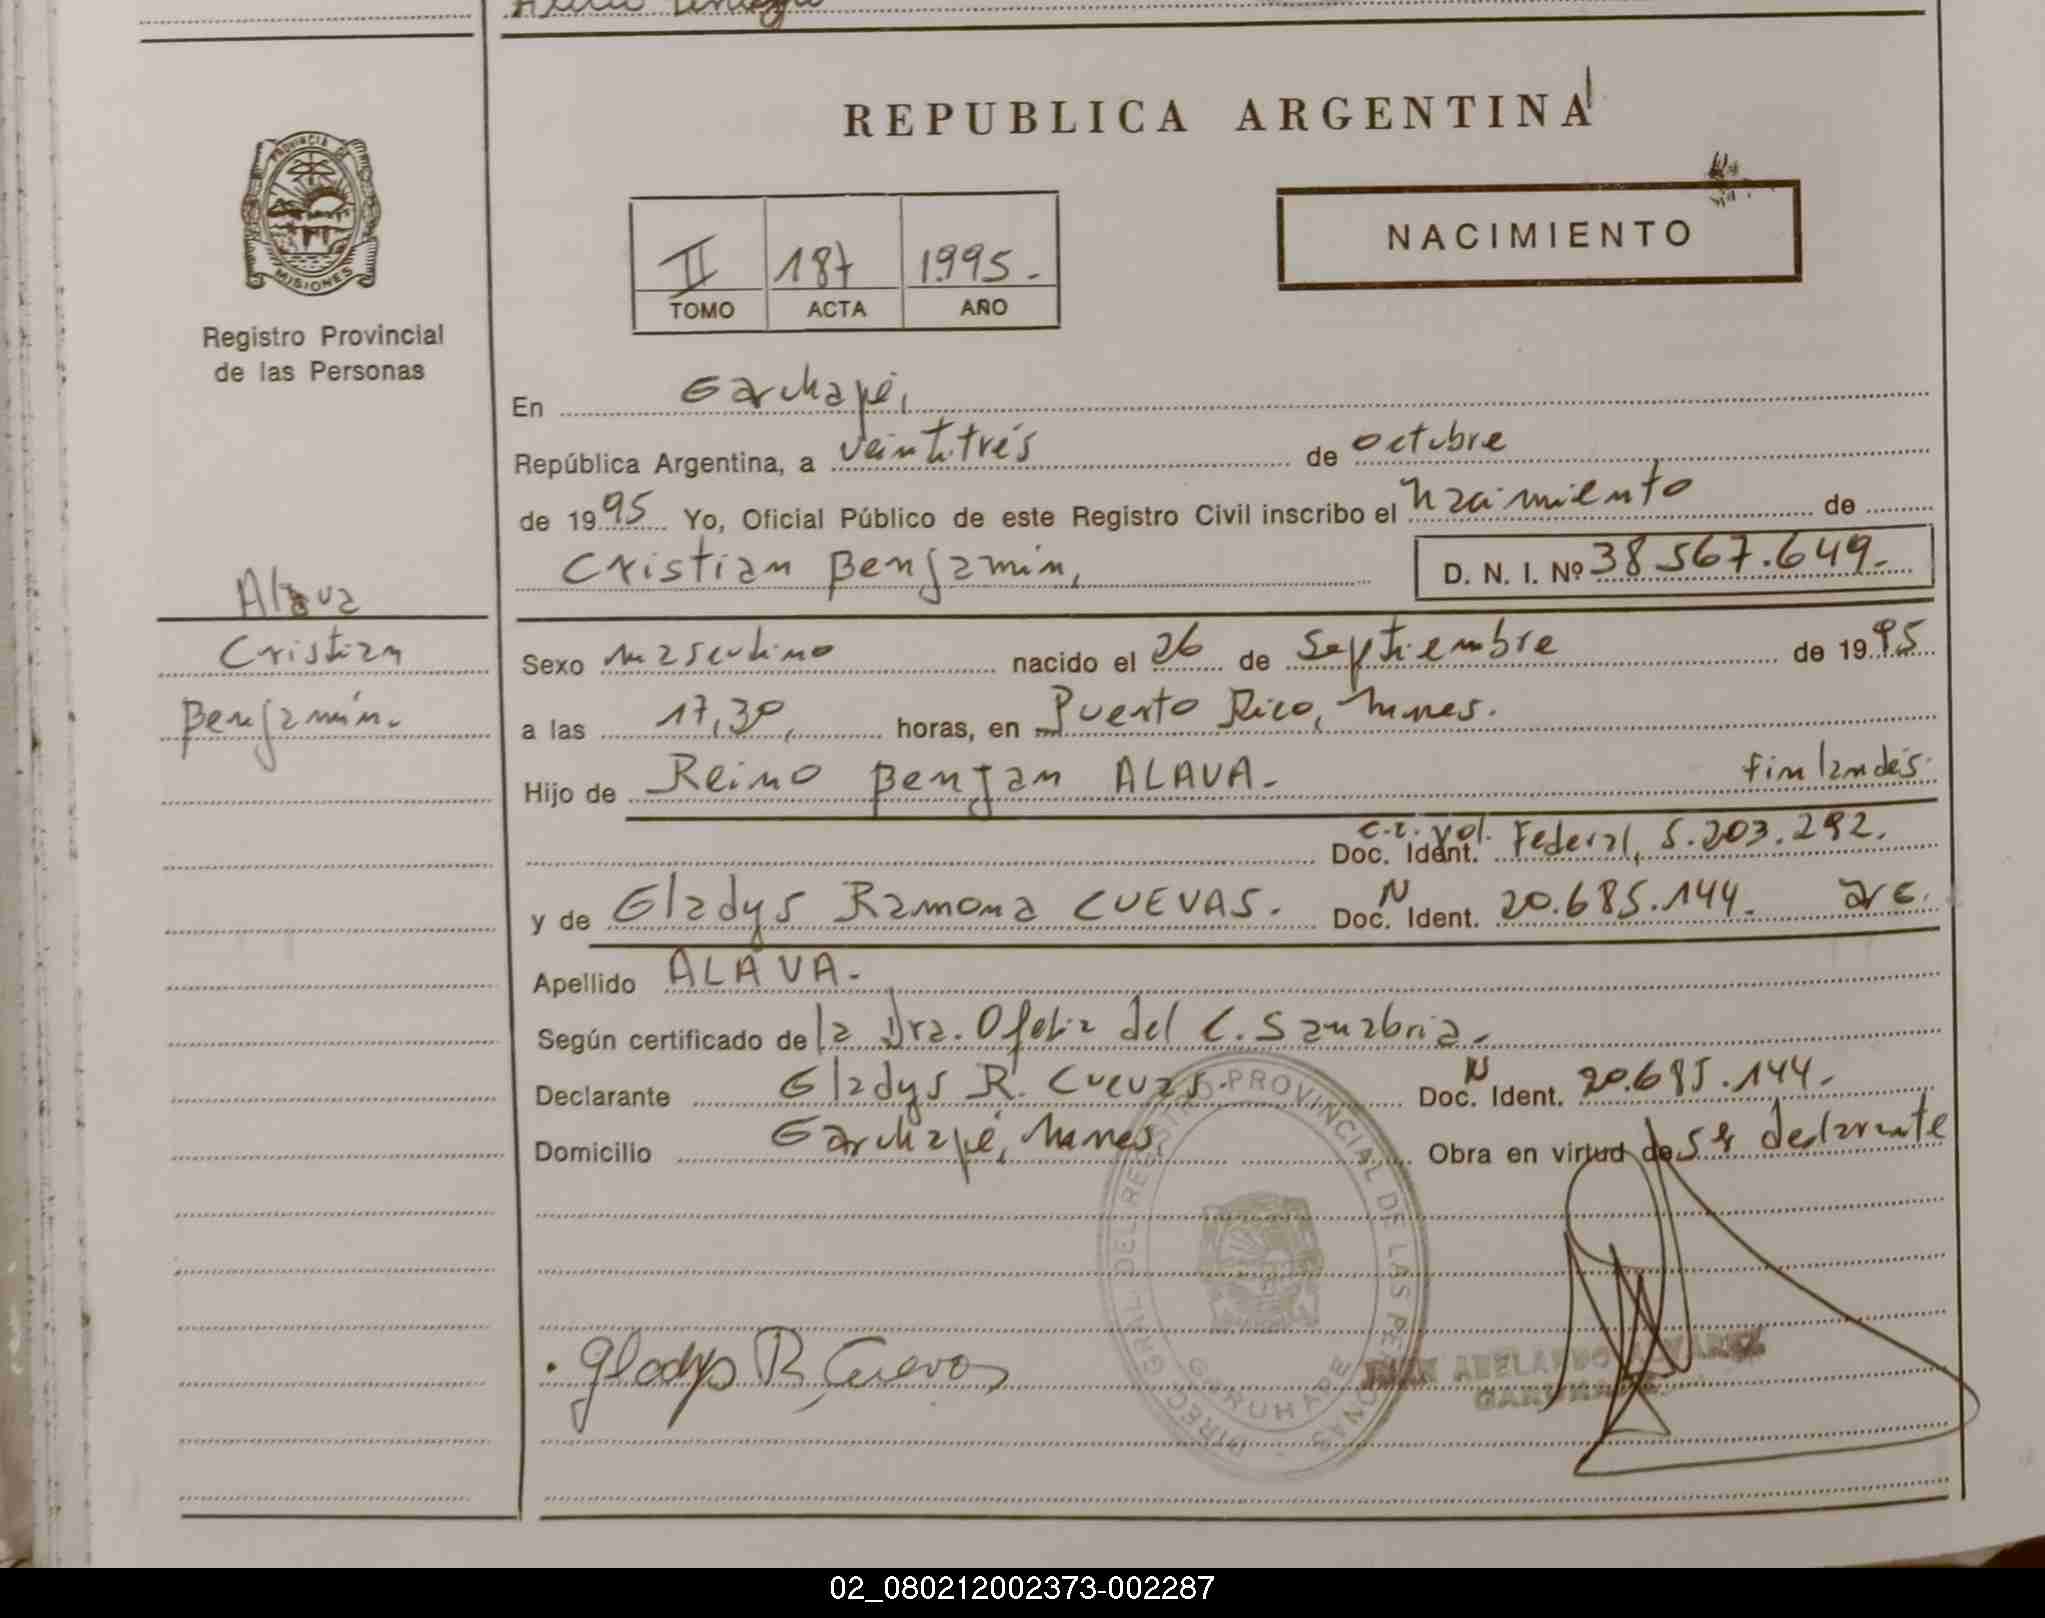 REPUBLICA ARGENTINA
PROVINCIA DE
MISIONES
Registro Provincial
de las Personas
NACIMIENTO
II 187 1995.-
TOMO ACTA AÑO
En Garuhapé,
República Argentina, a veintitrés de octubre
de 1995 Yo, Oficial Público de este Registro Civil inscribo el nacimiento de
Cristian Benjamín, D. N. I. Nº 38.567.649.-
Alava
Cristian
Benjamín.
Sexo masculino nacido el 26 de Septiembre de 1995
a las 17,30, horas, en Puerto Rico, Mnes.
Hijo de Reino Benjan ALAVA.- finlandés.
Doc. Ident. C.I. Pol. Federal, 5.203.292.
y de Gladys Ramona CUEVAS. Doc. N Ident. 20.685.144. arg.
Apellido ALAVA.-
Según certificado de la Dra. Ofelia del C. Sanabria.-
Declarante Gladys R. Cuevas. Doc. N Ident. 20.685.144.-
Domicilio Garuhapé, Mnes, Obra en virtud de ser declarante
DIREC. GRAL. DEL REGISTRO PROVINCIAL DE LAS PERSONAS
GARUHAPE
Gladys R Cuevas
ABELARDO
02_080212002373-002287